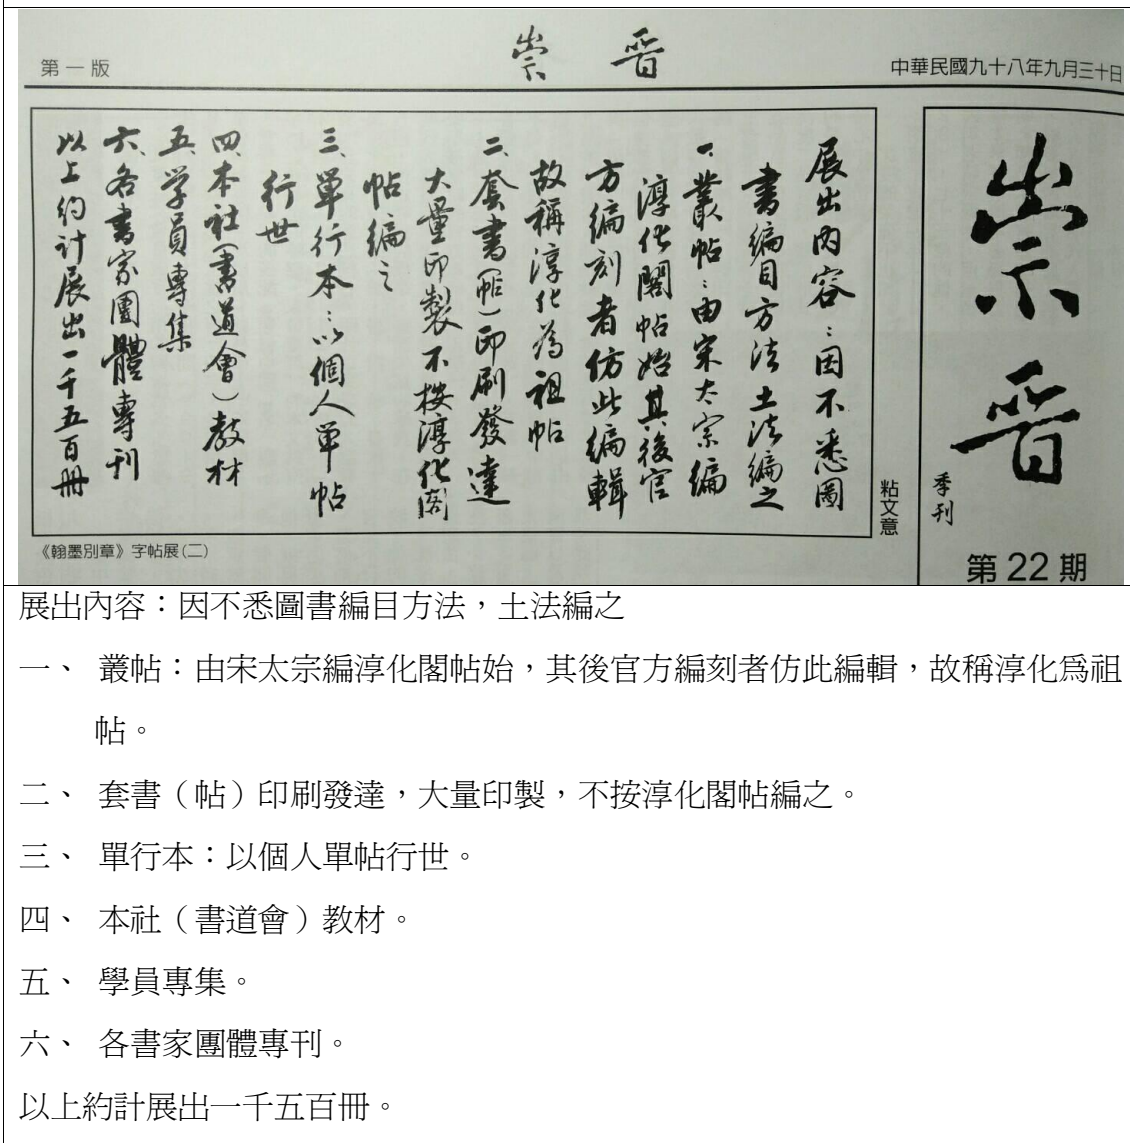 第一版
崇晋
中華民國九十八年九月三十日
崇晋
季刊
第22期
粘文意
展出內容：因不悉圖
書編目方法土法編之
一、叢帖：由宋太宗編
淳化閣帖始其後官
方編刻者仿此編輯
故稱淳化為祖帖
二、套書(帖)印刷發達
大量印製不按淳化閣
帖編之
三、單行本：以個人單帖
行世
四、本社(書道會)教材
五、学員專集
六、各書家團體專刊
以上約計展出一千五百冊
《翰墨別章》字帖展(二)
展出內容：因不悉圖書編目方法，土法編之
一、 叢帖：由宋太宗編淳化閣帖始，其後官方編刻者仿此編輯，故稱淳化爲祖
帖。
二、 套書（帖）印刷發達，大量印製，不按淳化閣帖編之。
三、 單行本：以個人單帖行世。
四、 本社（書道會）教材。
五、 學員專集。
六、 各書家團體專刊。
以上約計展出一千五百冊。